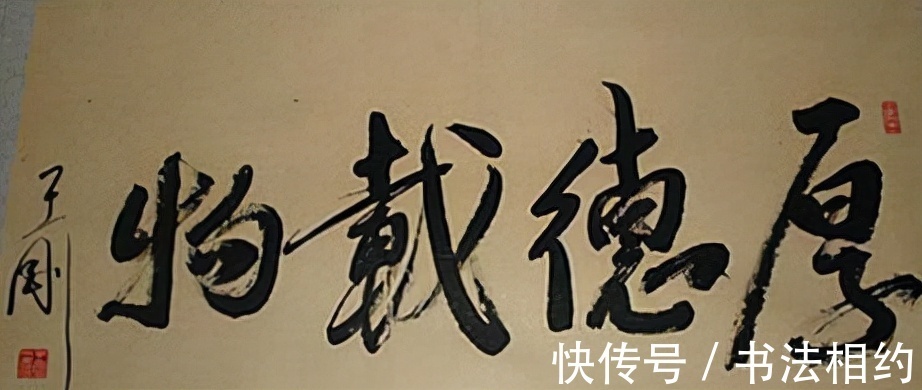 厚德載物
王刚
快传号 / 书法相约